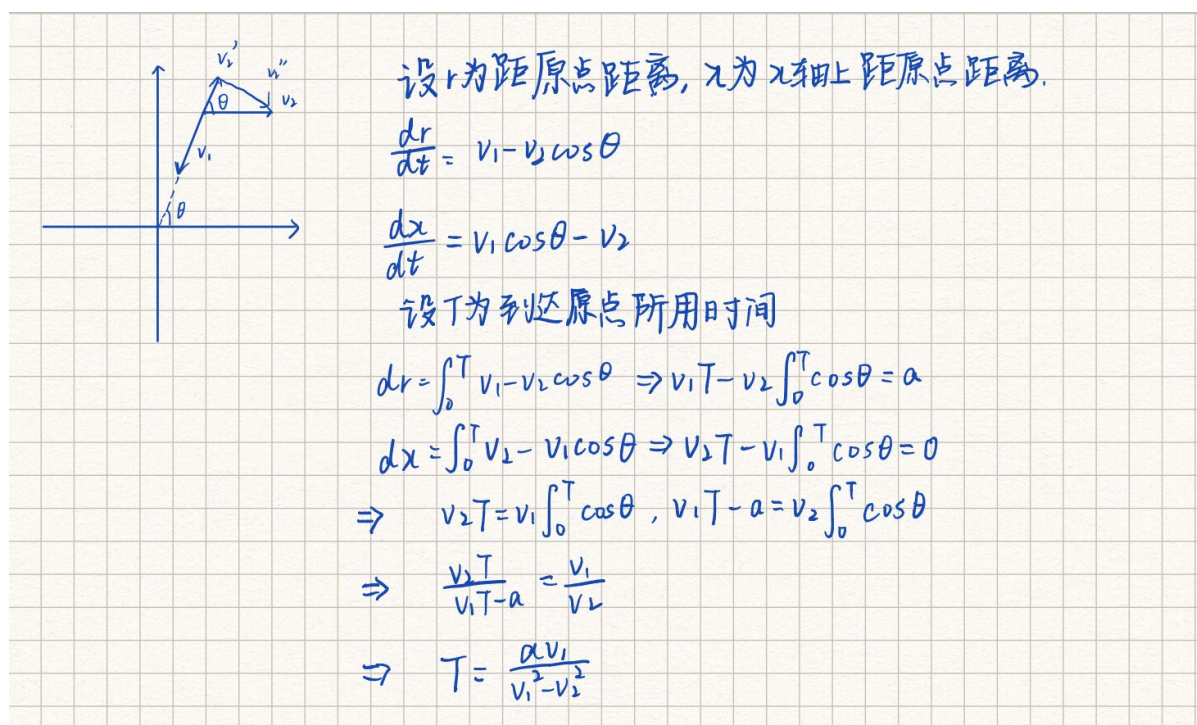 v₂'
v₂''
θ
v₂
v₁
θ
设r为距原点距离, x为x轴上距原点距离.
dr/dt = v₁-v₂cosθ
dx/dt = v₁cosθ-v₂
设T为到达原点所用时间
dr=∫₀ᵀ v₁-v₂cosθ ⇒ v₁T-v₂∫₀ᵀcosθ=a
dx=∫₀ᵀ v₂-v₁cosθ ⇒ v₂T-v₁∫₀ᵀcosθ=0
⇒ v₂T=v₁∫₀ᵀcosθ, v₁T-a=v₂∫₀ᵀcosθ
⇒ v₂T/(v₁T-a) = v₁/v₂
⇒ T= av₁/(v₁²-v₂²)